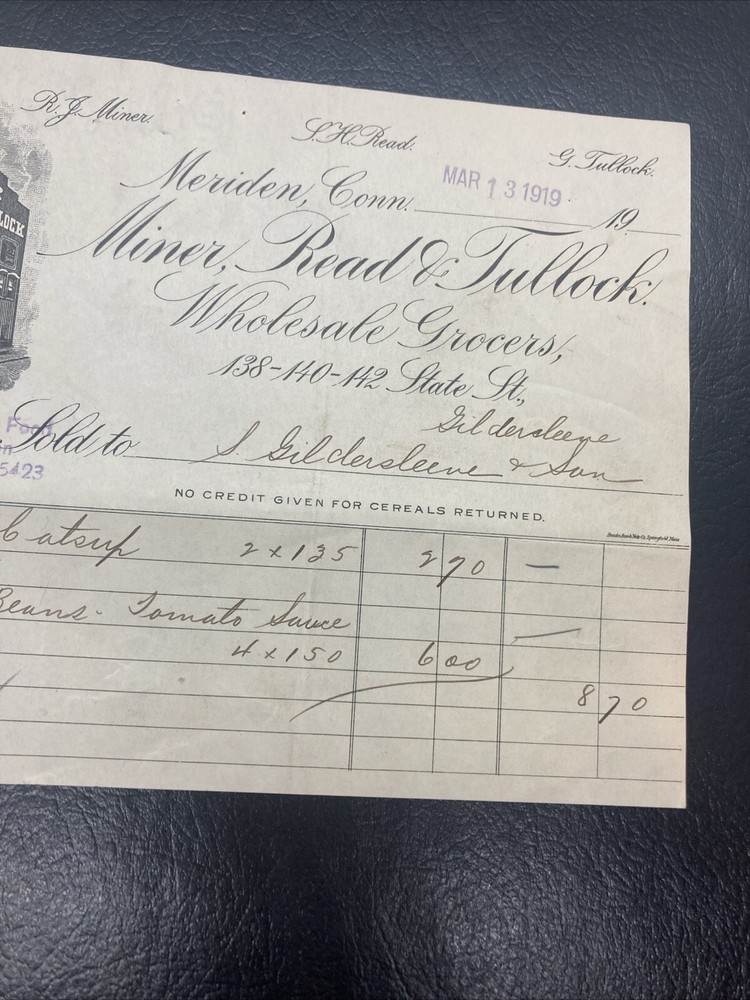 R. J. Miner.
S. H. Read.
G. Tullock.
Meriden, Conn. MAR 13 1919 19
Miner, Read & Tullock.
LOCK
Wholesale Grocers,
138-140-142 State St.,
Gildersleeve
Sold to S Gildersleeve & Son
5423
NO CREDIT GIVEN FOR CEREALS RETURNED.
Catsup 2 x 135 2 70 —
Beans - Tomato Sauce —
4 x 150 6 00
8 70